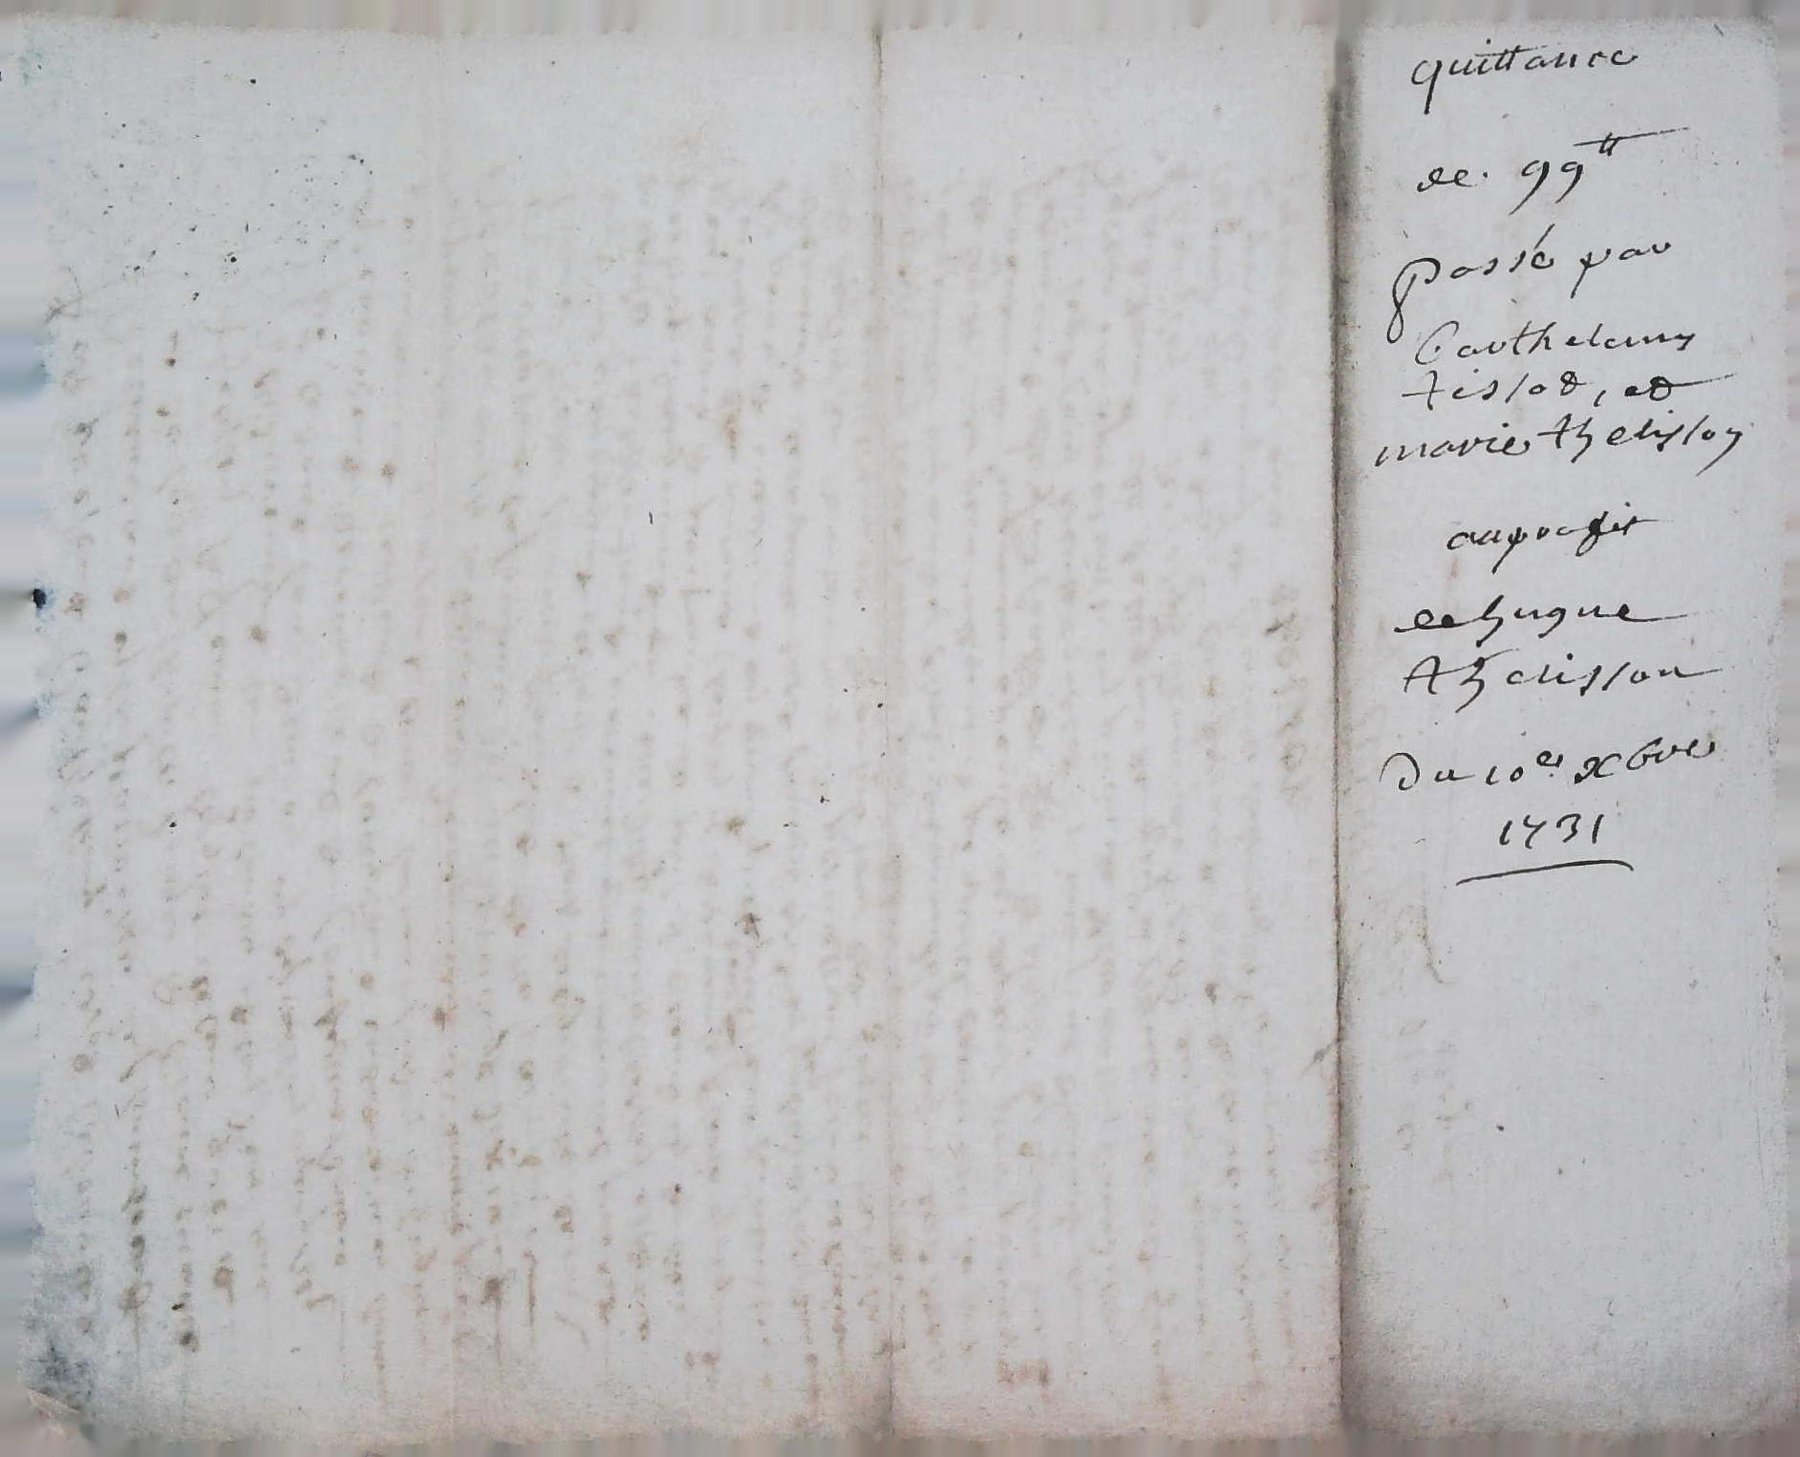 quittance
de 99tt
passé par
Barthelemy
tissot, et
marie thelisson
au profit
de hugue
thelisson
Du 10e xbre
1731